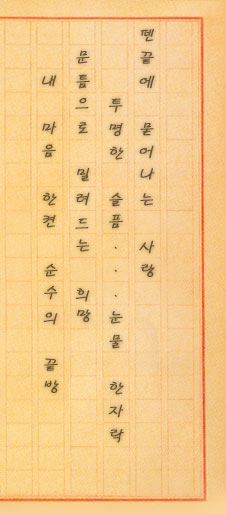 펜끝에 묻어나는 사랑
투명한 슬픔...눈물 한자락
문틈으로 밀려드는 희망
내 마음 한켠 순수의 끝방